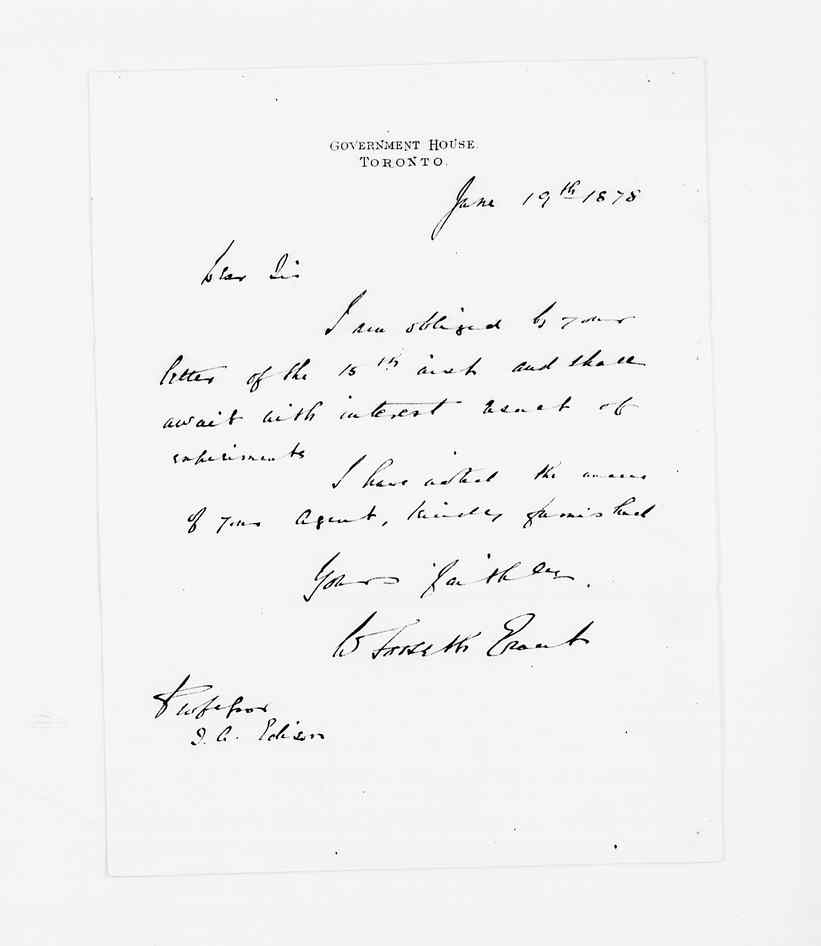 GOVERNMENT HOUSE.
TORONTO.
June 19th 1878
Dear Sir
I am obliged by your
letter of the 15th inst and shall
await with interest result of
experiments
I have noted the
of your Agent, kindly furnished
Yours faithfully.
W Forseth Grant
Professor
T. A. Edison